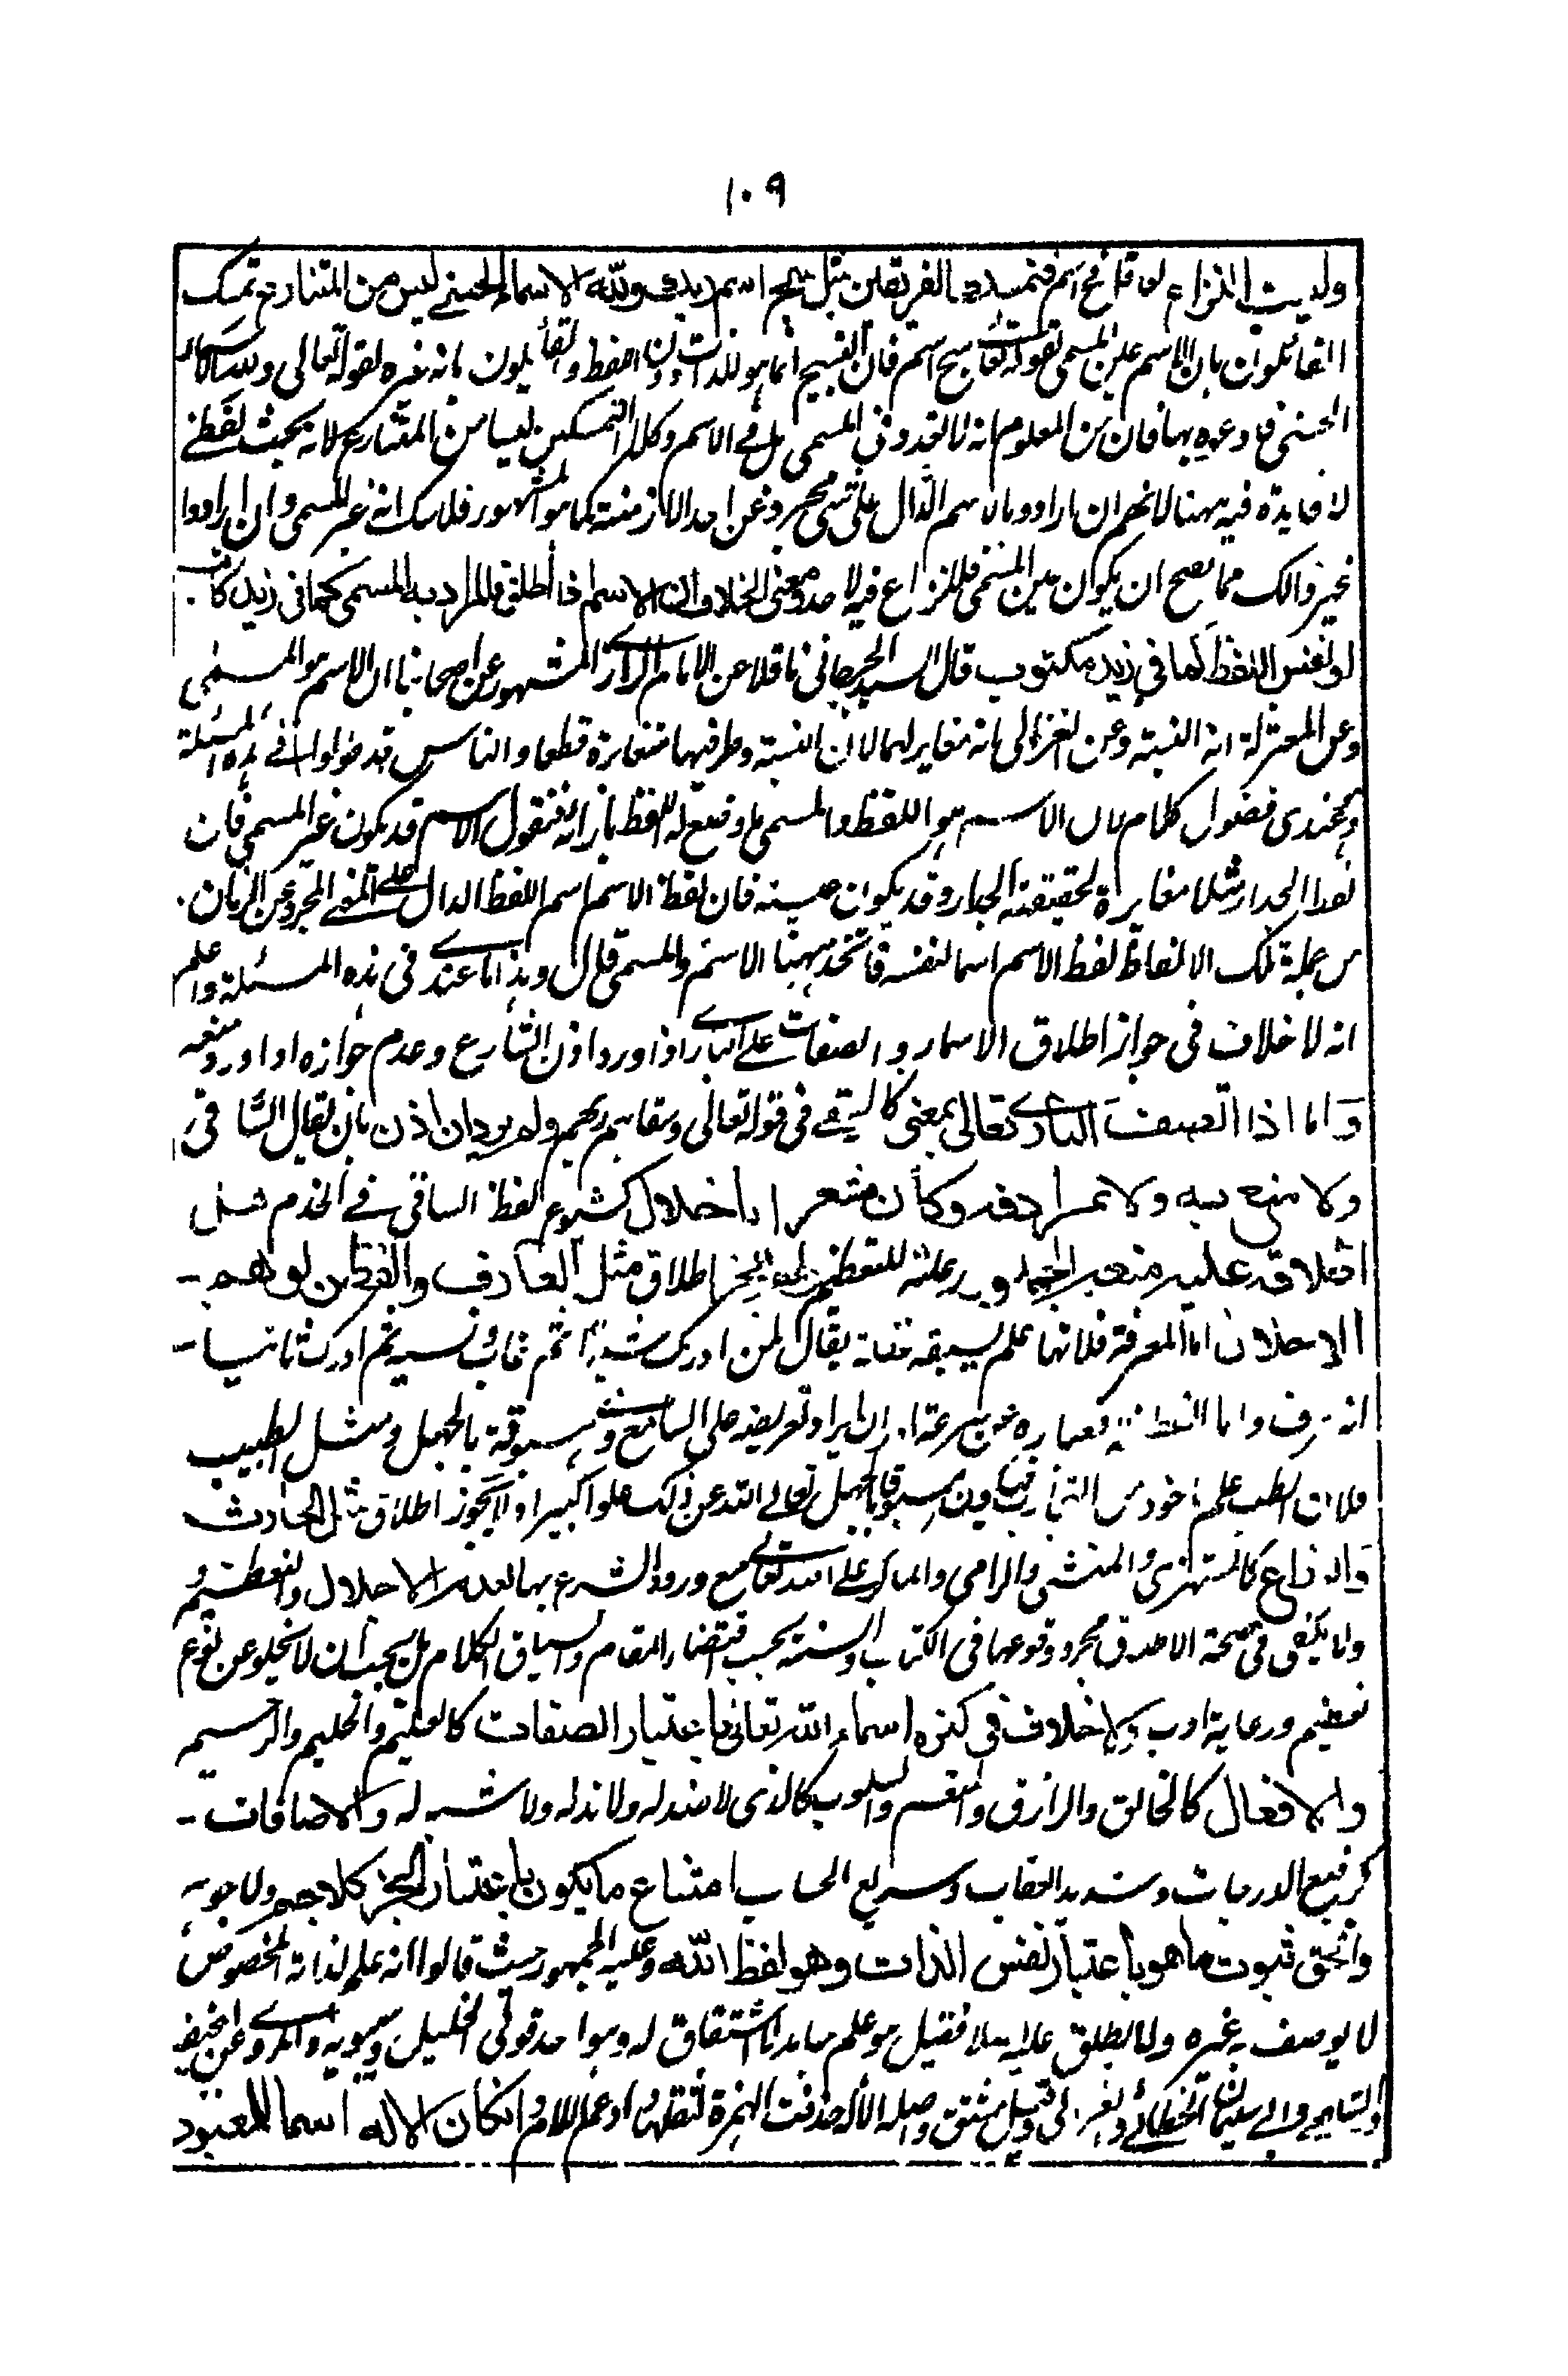 ١٠٩
وليت النزاع لو قاع اسم فتمسك الفريقين مثل سبح اسم ربك ولله الاسماء الحسنى ليس من المتنازع تمسك
القائلون بان الاسم عين المسمى بقوله تعالى سبح اسم فان التسبيح انما هو للذات دون اللفظ والقايلون بانه غيره لقوله تعالى ولله الاسماء
الحسنى فادعوه بها فان من المعلوم انه لا تعدد في المسمى بل في الاسم وكلا التمسكين ليسا من المتنازع لانه بحث لفظي
لا فايدة فيه ههنا لانهم ان ارادوا بالاسم الدال على شي مجرد عن احد الازمنة كما هو المشهور فلا شك انه غير المسمى وان ارادوا
غير ذالك مما يصح ان يكون عين المسمى فلا نزاع فيه لاحد ومعنى الخلاف ان الاسم اذا اطلق فالمراد به المسمى كما في زيد كاتب
او نفس اللفظ كما في زيد مكتوب قال السيد الجرجاني ناقلا عن الامام الرازي المشهور عن اصحابنا ان الاسم هو المسمى
وعن المعتزلة انه التسمية وعن الغزالي انه مغاير لهما لان النسبة وطرفيها متغايرة قطعا والناس قد طولوا في هذه المسئلة
وعندي فضول كلام لان الاسم هو اللفظ والمسمى ما وضع له اللفظ بازائه فنقول الاسم قد يكون غير المسمى فان
لفظ الجدار مثلا مغايرة لحقيقة الجدار وقد يكون عينه فان لفظ الاسم اسم اللفظ الدال على المعنى المجرد عن الزمان
من جملة تلك الالفاظ لفظ الاسم اسما لنفسه فاتحد ههنا الاسم والمسمى قال وهذا ما عندي في هذه المسئلة واعلم
انه لا خلاف في جواز اطلاق الاسماء والصفات على الباري اذا ورد اذن الشارع وعدم جوازه اذا ورد منعه
واما اذا اتصف الباري تعالى بمعنى كالسقي في قوله تعالى وسقاهم ربهم ولم يرد ان اذن بان يقال الساقي
ولا منع به ولا بمرادفه وكان مشعرا باخلال كشيوع لفظ الساقي في الخدم هل
اطلاقه عليه للتعظيم لم يجز اطلاق مثل العارف والفطن لوهم
الاخلال اما المعرفة فلانها علم يسبقه غفلة يقال لمن ادرك شيئا ثم غاب ونسيه ثم ادرك ثانيا
انه عرف واما الفطنة فعبارة عن سرعة ادراك ما يراد تعريضه على السامع وهي مسبوقة بالجهل ومثل الطبيب
فلان الطب علم ماخوذ من التجارب فيكون مسبوقا بالجهل تعالى الله عن ذلك علوا كبيرا ولا يجوز اطلاق مثل الحارث
والزارع كالمستهزئ والمنشي والرامي والماكر على الله تعالى مع ورود الشرع بها لعدم الاجلال والتعظيم و
ولا يكفي في صحة الاطلاق مجرد وقوعها في الكتاب والسنة بحسب اقتضاء المقام وسياق الكلام بل يجب ان لا يخلو عن نوع
تعظيم ورعاية ادب ولا خلاف في كثرة اسماء الله تعالى باعتبار الصفات كالعليم والحليم والرحيم
والافعال كالخالق والرازق والمقسم والسلوب كالذي لا ضد له ولا ند له ولا شبه له والاضافات
كرفيع الدرجات وشديد العقاب وسريع الحساب امتناع ما يكون باعتبار الجزء كلا جسم ولا جوهر
والحق ثبوت ما هو باعتبار نفس الذات وهو لفظ الله وعليه الجمهور حيث قالوا انه علم لذاته المخصوص
لا يوصف به غيره ولا يطلق عليه فقيل هو علم لا اشتقاق له وهو احد قولي الخليل وسيبويه والمروي عن ابي حنيفة
والشافعي وابي سليمان الخطابي والغزالي وقيل مشتق واصله الاله حذفت الهمزة لثقلها وادغم اللام وكان الاله اسما للمعبود